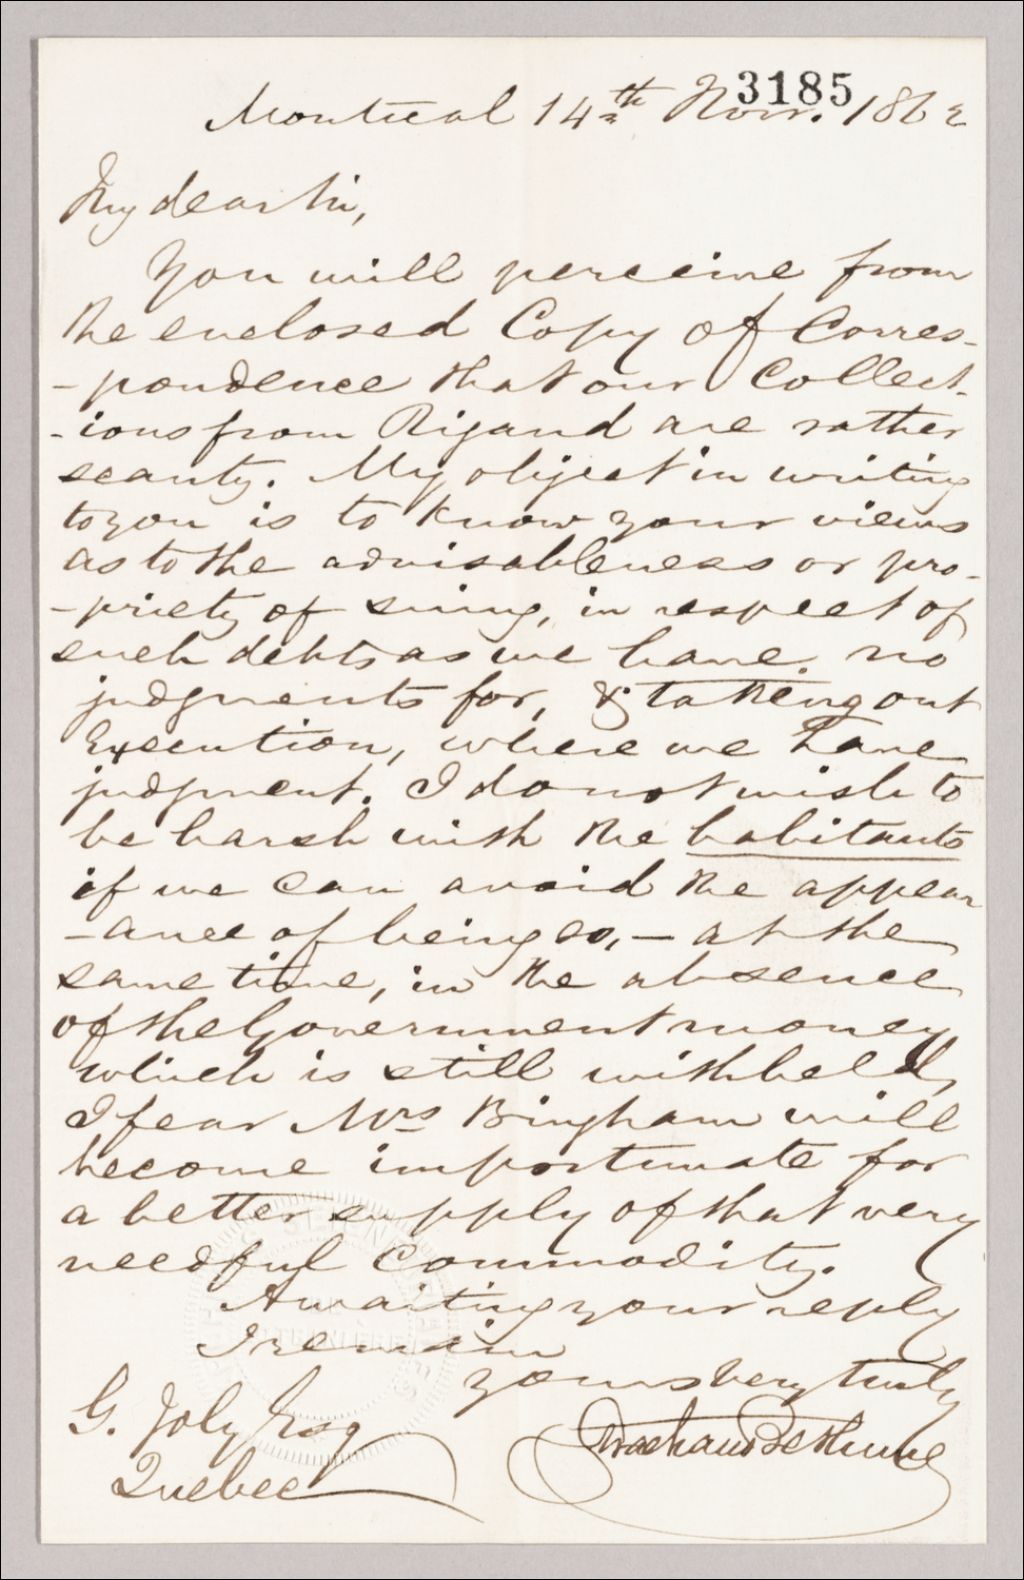 3185
Montreal 14th Novr. 1862
My dear Sir,
You will perceive from
the enclosed Copy of Corres-
-pondence that our Collect-
-ions from Rigaud are rather
scanty. My object in writing
to you is to know your views
as to the advisableness or pro-
-priety of suing, in respect of
such debts as we have no
judgments for, & taking out
Execution, where we have
judgment. I do not wish to
be harsh with the habitants
if we can avoid the appear
-ance of being so, — at the
same time, in the absence
of the Government money
which is still withheld,
I fear Mrs Bingham will
become importunate for
a better supply of that very
needful commodity.
Awaiting your reply
I remain
yours very truly
Strachan Bethune
G. Joly Esq
Quebec